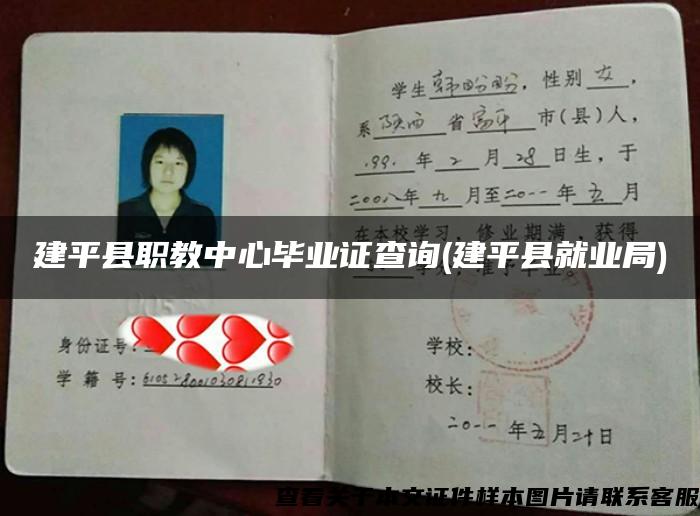 学生韩盼盼，性别女，
系陕西省富平市(县)人，
1991年2月28日生，于
二00八年九月至二0一一年五月
在本校学习，修业期满，获得
建平县职教中心毕业证查询(建平县就业局)
身份证号:
学籍号:
学校:
校长:
二0一一年五月二十日
查看关于本文证件样本图片请联系客服